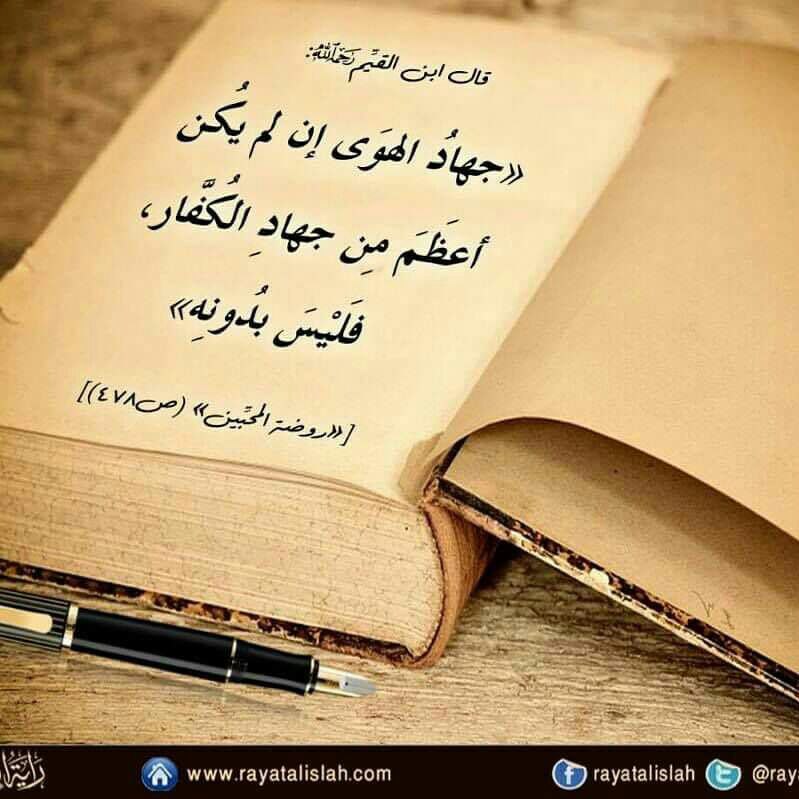 قال ابن القيِّم رَحِمَهُ اللَّهُ:
«جهادُ الهوَى إن لم يُكن
أعظَمَ مِن جهادِ الُكفَّار،
فَلَيْسَ بُدونهِ»
[«روضة المحبِّين» (ص٤٧٨)]
www.rayatalislah.com
rayatalislah
@ray